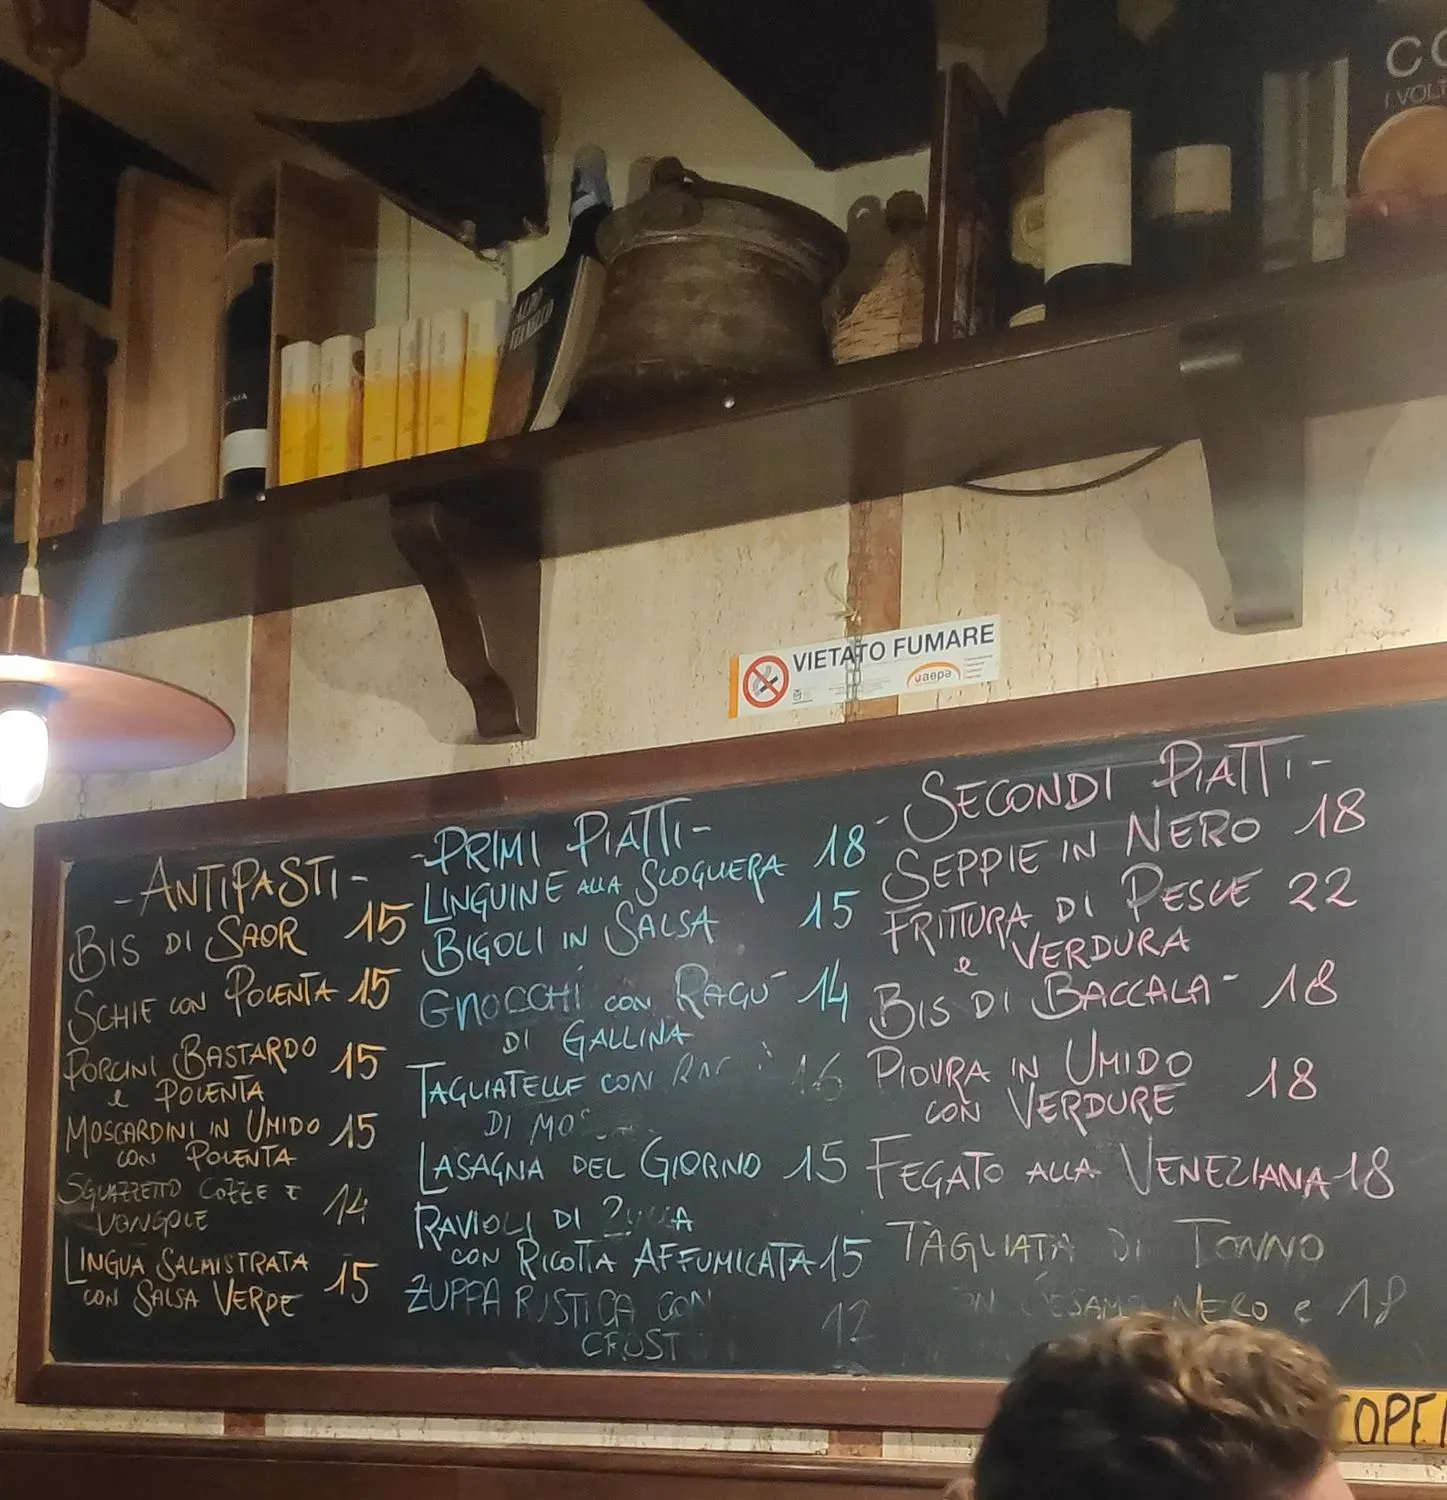 CO
I VOLT
VIETATO FUMARE
uaepe
- ANTIPASTI -
BIS DI SAOR 15
SCHIE CON POLENTA 15
PORCINI BASTARDO 15
e POLENTA
MOSCARDINI IN UMIDO 15
CON POLENTA
SGUAZZETTO COZZE E 14
VONGOLE
LINGUA SALMISTRATA 15
CON SALSA VERDE
- PRIMI PIATTI -
LINGUINE ALLA SCOGLIERA 18
BIGOLI IN SALSA 15
GNOCCHI CON RAGÚ 14
DI GALLINA
TAGLIATELLE CON 16
DI
LASAGNA DEL GIORNO 15
RAVIOLI DI ZUCCA
CON RICOTTA AFFUMICATA 15
ZUPPA RUSTICA CON 12
CROST
- SECONDI PIATTI -
SEPPIE IN NERO 18
FRITTURA DI PESCE 22
e VERDURA
BIS DI BACCALA' 18
PIOVRA IN UMIDO 18
CON VERDURE
FEGATO ALLA VENEZIANA 18
TAGLIATA DI TONNO
SESAMO NERO e 18
COPE